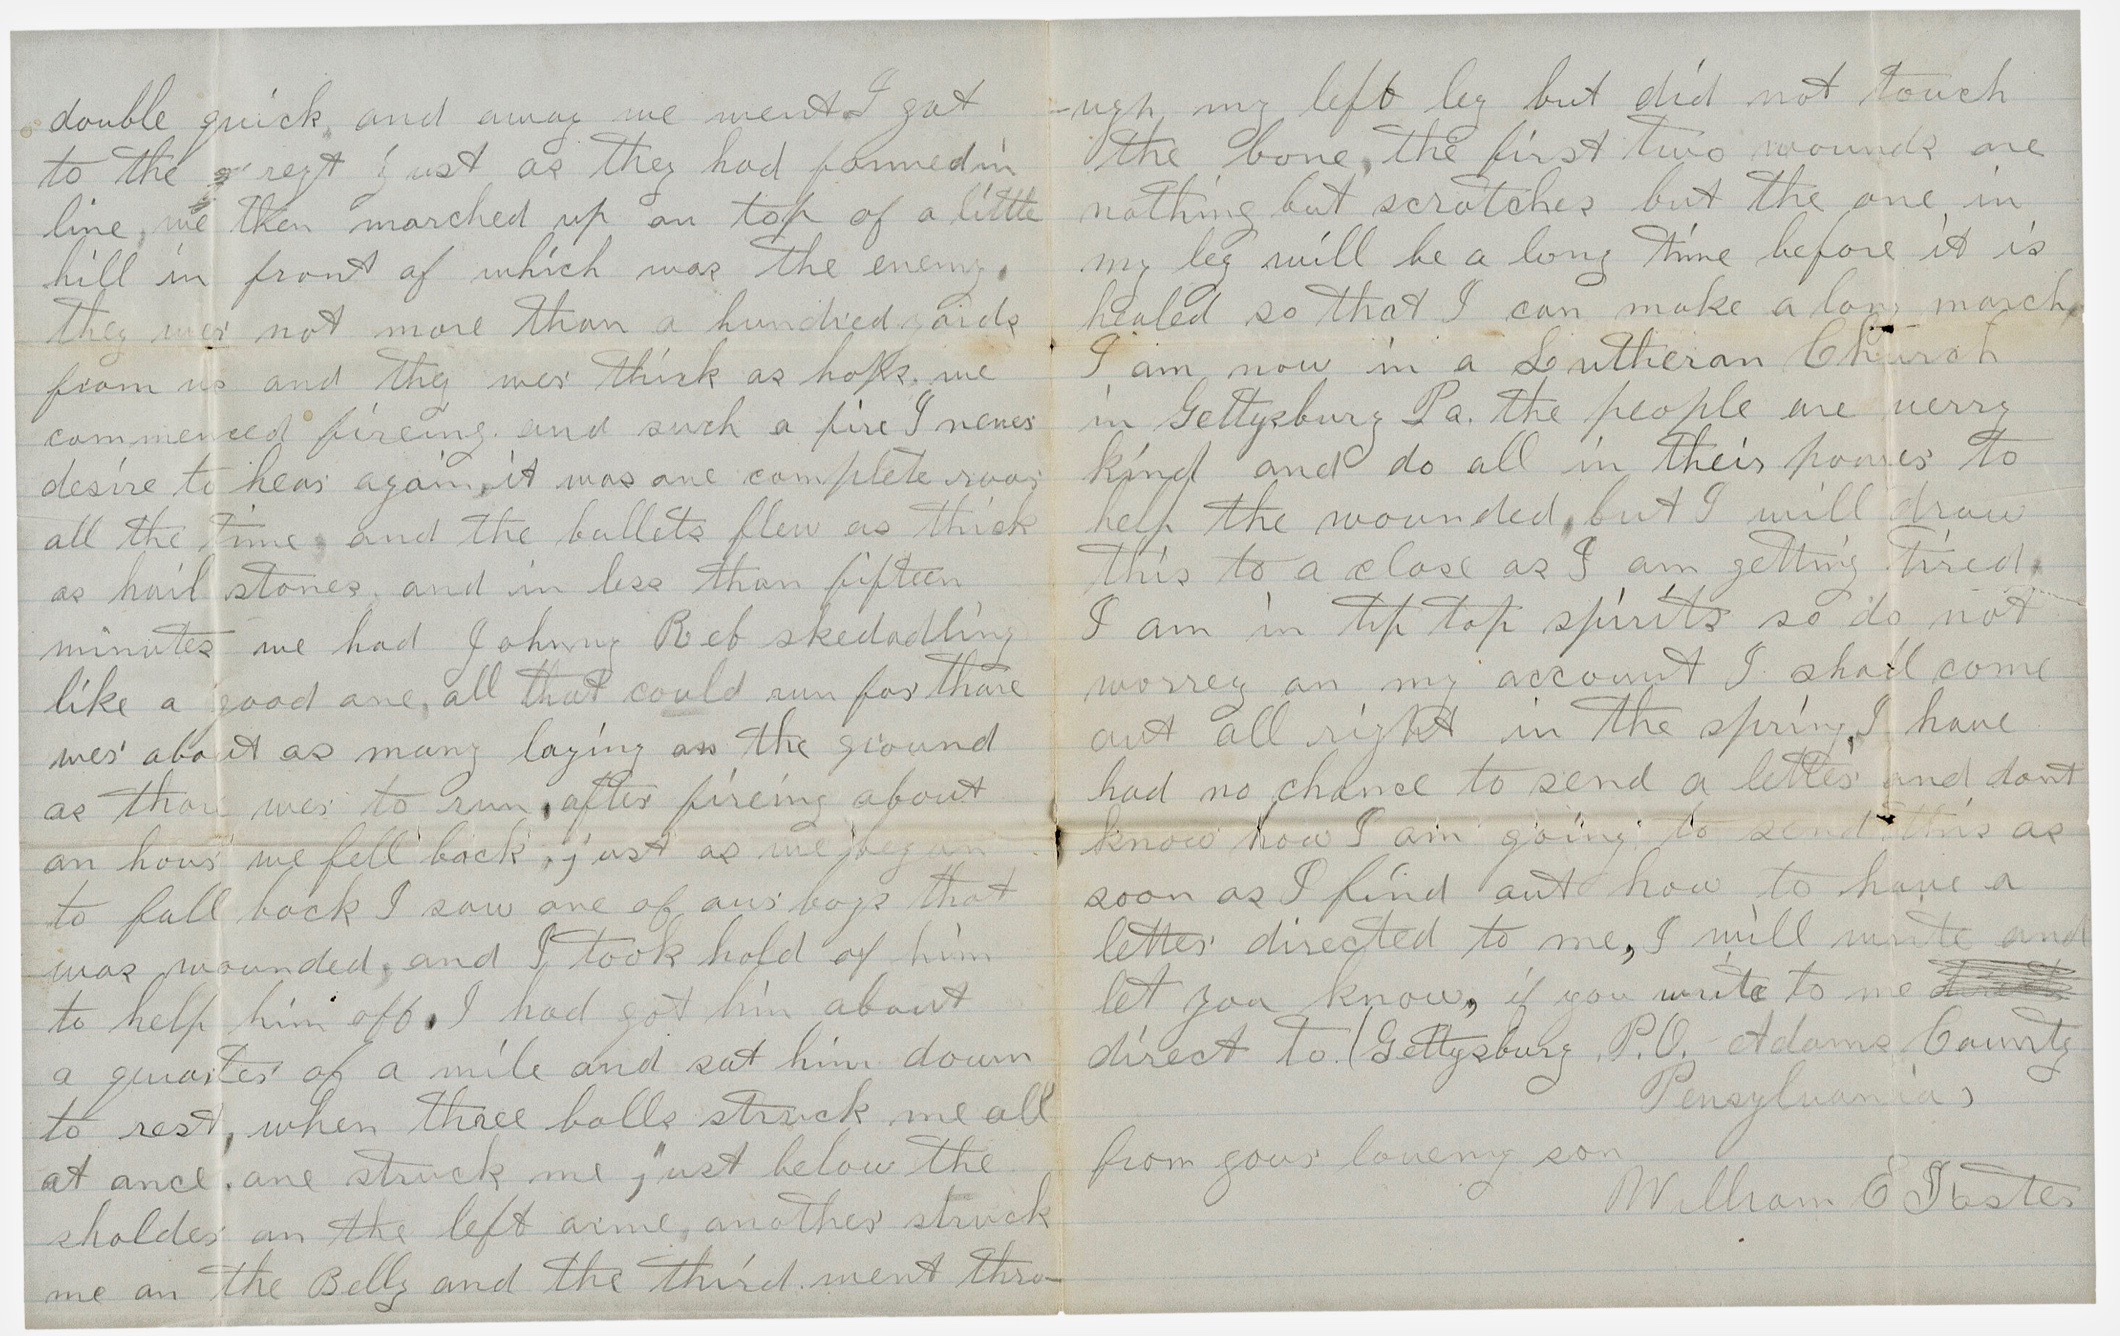 double quick, and away we went. I got
to the regt just as they had formed in
line, we then marched up on top of a little
hill in front of which was the enemy.
they wer not more than a hundred yards
from us and they wer thick as hops. we
commenced fireing. and such a fire I never
desire to hear again, it was one complete roar
all the time. and the bullets flew as thick
as hail stones. and in less than fifteen
minutes we had Johnny Reb skedadling
like a good one, all that could run for thare
wer about as many laying on the ground
as thare wer to run. after fireing about
an hour we fell back, just as we began
to fall back I saw one of our boys that
was wounded, and I took hold of him
to help him off. I had got him about
a quarter of a mile and sat him down
to rest, when three balls struck me all
at once. one struck me just below the
sholder on the left arme, another struck
me on the Belly and the third went thro-
-ugh my left leg but did not touch
the bone, the first two wounds are
nothing but scratches but the one in
my leg will be a long time before it is
healed so that I can make a long march,
I am now in a Lutheran Church
in Gettysburg Pa. the people are verry
kind and do all in their power to
help the wounded, but I will draw
this to a close as I am getting tired.
I am in tip top spirits so do not
worrey on my account I shall come
out all right in the spring, I have
had no chance to send a letter and dont
know how I am going to send this as
soon as I find out how to have a
letter directed to me, I will write and
let you know, if you write to me
direct to (Gettysburg P.O. Adams County
Pensylvania)
from your loveing son
William E Foster